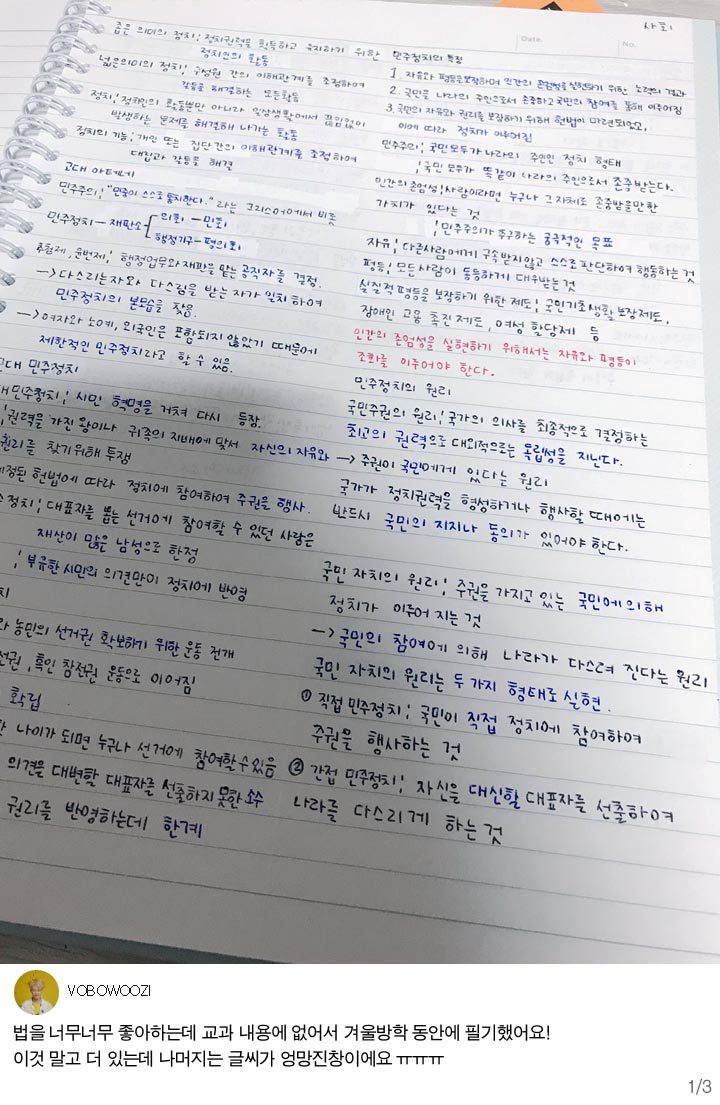 사회
Date.
No.
좁은 의미의 정치; 정치권력을 획득하고 유지하기 위한
정치인의 활동
넓은의미의 정치; 구성원 간의 이해관계를 조정하여
갈등을 해결하는 모든활동
정치; 정치인의 활동뿐만 아니라 일상생활에서 끊임없이
발생하는 문제를 해결해 나가는 활동
정치의 기능; 개인 또는 집단간의 이해관계를 조정하여
대립과 갈등을 해결
고대 아테네
민주주의; "민중이 스스로 통치한다." 라는 그리스어에서 비롯
민주정치 - 재판소
의회 - 민회
행정기구 - 평의회
추첨제, 윤번제; 행정업무와 재판을 맡는 공직자를 결정.
→ 다스리는자와 다스림을 받는 자가 일치 하여
민주정치의 본모습을 찾음.
→ 여자와 노예, 외국인은 포함되지 않았기 때문에
제한적인 민주정치라고 할 수 있음.
민주정치
시민 혁명을 거쳐 다시 등장.
;권력을 가진 왕이나 귀족의 지배에 맞서 자신의 자유와
권리를 찾기위해 투쟁
헌법에 따라 정치에 참여하여 주권을 행사.
대표자를 뽑는 선거에 참여할 수 있던 사람은
재산이 많은 남성으로 한정
; 부유한 시민의 의견만이 정치에 반영
농민의 선거권 확보하기 위한 운동 전개
흑인 참전권 운동으로 이어짐
확립
나이가 되면 누구나 선거에 참여할수 있음
의견을 대변할 대표자를 선출하지 못한 소수
권리를 반영하는데 한계
민주정치의 특징
1. 자유와 평등을 보장하며 인간의 존엄성을 실현하기 위한 노력의 결과
2. 국민을 나라의 주인으로서 존중하고 국민의 참여를 통해 이루어짐
3. 국민의 자유와 권리를 보장하기 위해 헌법이 마련되었고,
이에 따라 정치가 이루어짐
민주주의; 국민 모두가 나라의 주인인 정치 형태
; 국민 모두가 똑같이 나라의 주인으로서 존중받는다.
인간의 존엄성; 사람이라면 누구나 그 자체로 존중받을만한
가치가 있다는 것
; 민주주의가 추구하는 궁극적인 목표
자유; 다른사람에게 구속받지않고 스스로 판단하여 행동하는 것
평등; 모든사람이 동등하게 대우받는것
실질적 평등을 보장하기 위한 제도; 국민기초생활 보장제도,
장애인 고용 촉진 제도, 여성 할당제 등
인간의 존엄성을 실현하기 위해서는 자유와 평등이
조화를 이루어야 한다.
민주정치의 원리
국민주권의 원리; 국가의 의사를 최종적으로 결정하는
최고의 권력으로 대외적으로는 독립성을 지닌다.
→ 주권이 국민에게 있다는 원리
국가가 정치권력을 형성하거나 행사할 때에는
반드시 국민의 지지나 동의가 있어야 한다.
국민 자치의 원리; 주권을 가지고 있는 국민에 의해
정치가 이루어 지는 것
→ 국민의 참여에 의해 나라가 다스려 진다는 원리
국민 자치의 원리는 두가지 형태로 실현.
① 직접 민주정치; 국민이 직접 정치에 참여하여
주권을 행사하는 것
② 간접 민주정치; 자신을 대신할 대표자를 선출하여
나라를 다스리게 하는 것
VOBOWOOZI
법을 너무너무 좋아하는데 교과 내용에 없어서 겨울방학 동안에 필기했어요!
이것 말고 더 있는데 나머지는 글씨가 엉망진창이에요 ㅠㅠㅠ
1/3